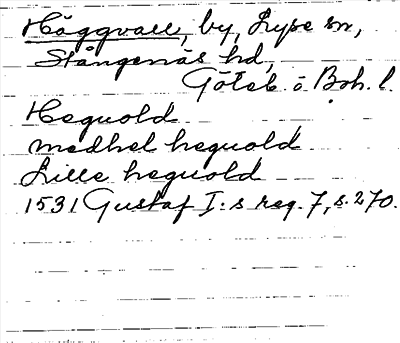 Häggvall, by, Lyse sn,
Stångenäs hd,
Göteb. o. Boh. l.
Heguold
medhel heguold
Lille heguold
1531 Gustaf I:s reg. 7, s. 270.